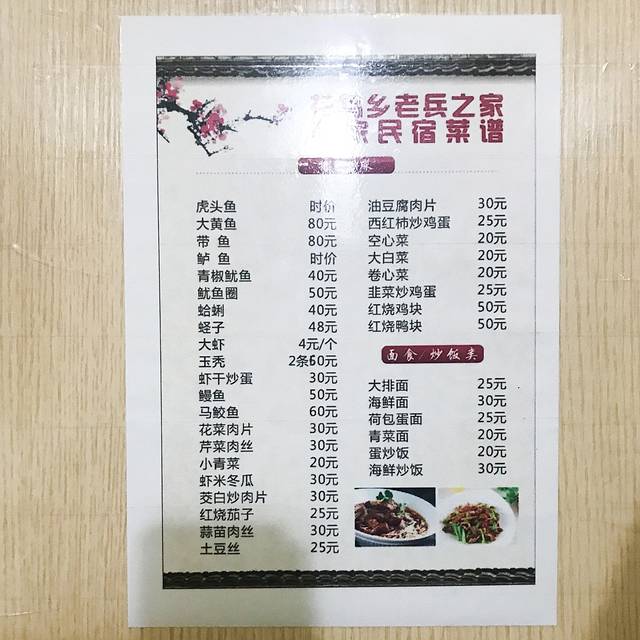 乡老兵之家
家民宿菜谱
虎头鱼 时价
大黄鱼 80元
带 鱼 80元
鲈 鱼 时价
青椒鱿鱼 40元
鱿鱼圈 50元
蛤蜊 40元
蛏子 48元
大虾 4元/个
玉秃 2条60元
虾干炒蛋 30元
鳗鱼 50元
马鲛鱼 60元
花菜肉片 30元
芹菜肉丝 30元
小青菜 20元
虾米冬瓜 30元
茭白炒肉片 30元
红烧茄子 25元
蒜苗肉丝 30元
土豆丝 25元
油豆腐肉片 30元
西红柿炒鸡蛋 25元
空心菜 20元
大白菜 20元
卷心菜 20元
韭菜炒鸡蛋 25元
红烧鸡块 50元
红烧鸭块 50元
面食/炒饭类
大排面 25元
海鲜面 30元
荷包蛋面 25元
青菜面 20元
蛋炒饭 20元
海鲜炒饭 30元